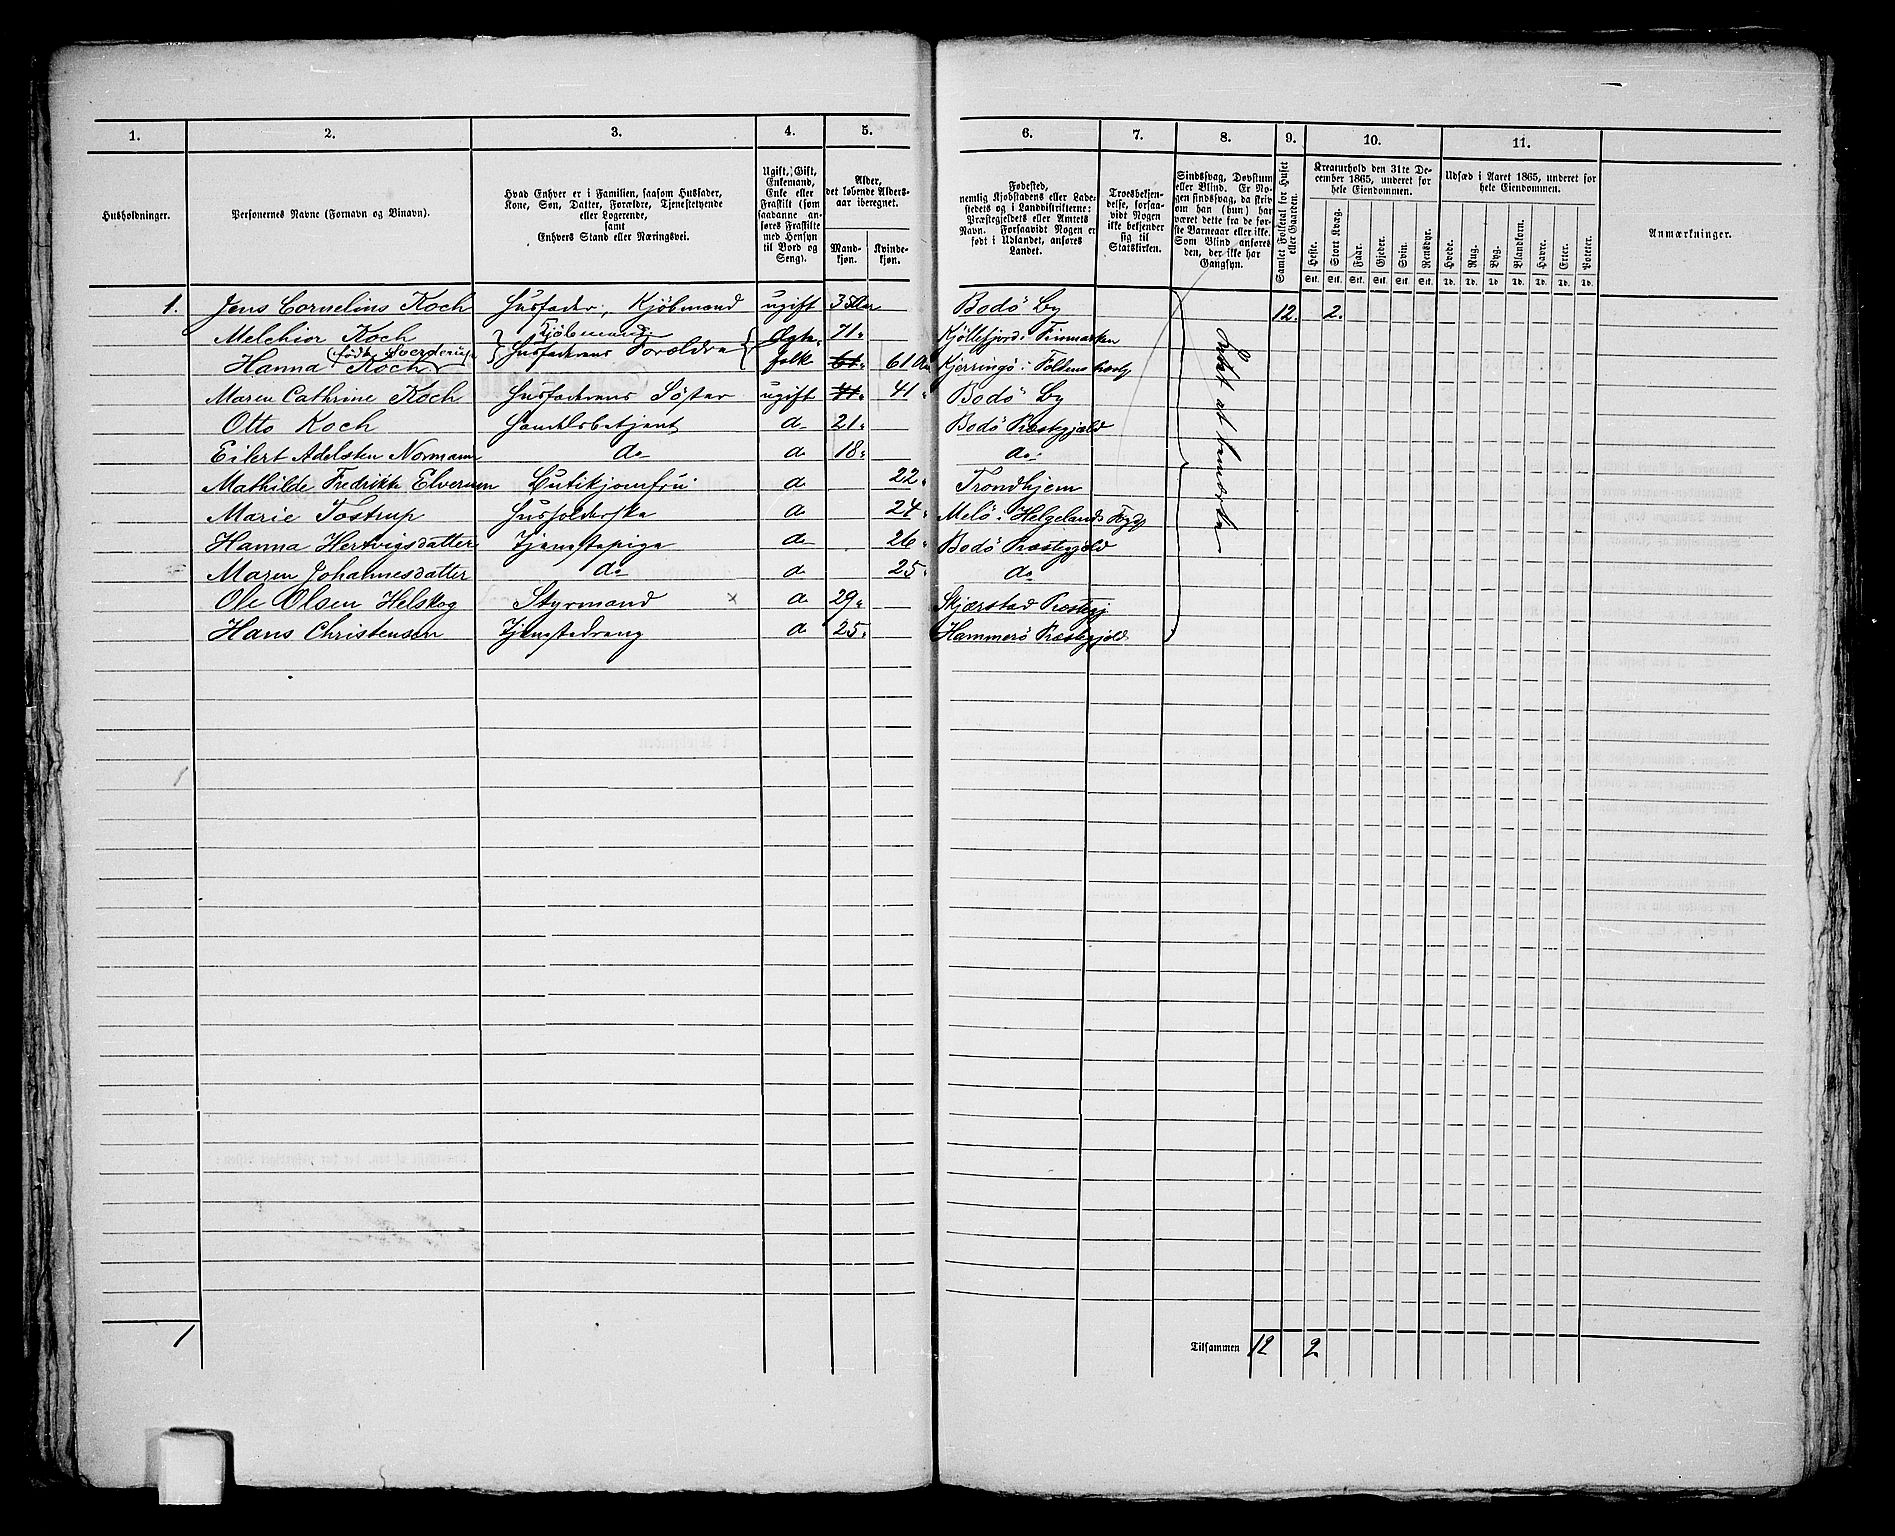 1. 2. 3. 4. 5. 6. 7. 8. 9. 10. 11.
Husholdninger.
Personernes Navne (Fornavn og Binavn).
Hvad Enhver er i Familien, saasom Husfader,
Kone, Søn, Datter, Forældre, Tjenestetyende
eller Logerende,
samt
Enhvers Stand eller Næringsvei.
Ugift, Gift,
Enkemand,
Enke eller
Fraskilt (som
saadanne an-
føres Fraskilte
med Hensyn
til Bord og
Seng).
Alder,
det løbende Alders-
aar iberegnet.
Mand-
kjøn.
Kvinde-
kjøn.
Fødested,
nemlig Kjøbstadens eller Lade-
stedets og i Landdistrikterne:
Præstegjeldets eller Amtets
Navn. Forsaavidt Nogen er
født i Udlandet, anføres
Landet.
Troesbekjen-
delse, forsaa-
vidt Nogen
ikke bekjender
sig til
Statskirken.
Sindssvag, Døvstum
eller Blind. Er No-
gen sindssvag, da skriv
om han (hun) har
været dette fra de før-
ste Barneaar eller ikke.
Som Blind anføres
den, der ikke har
Gangsyn.
Samlet Folketal for Huset
eller Gaarden.
Kreaturhold den 31te De-
cember 1865, underet for
hele Eiendommen.
Heste. Stort Kvæg. Faar. Gjeder. Svin. Rensdyr.
Stk. Stk. Stk. Stk. Stk. Stk.
Udsæd i Aaret 1865, underet for
hele Eiendommen.
Hvede. Rug. Byg. Blandkorn. Havre. Erter. Poteter.
Td. Td. Td. Td. Td. Td. Td.
Anmærkninger.
1. Jens Cornelius Koch Husfader, Kjøbmand ugift 35 Aar Bodø By 12. 2.
Melchior Koch Kjøbmand Ægte- 71 " Kjøllefjord i Finmarken
(født Sverdrup)
Hanna Koch Husfaderens Forældre folk 61 " 61 Aar Kjerringø i Foldens
Maren Cathrine Koch Husfaderens Søster ugift 41 " 41 " Bodø By
Otto Koch Handelsbetjent do 21 " Bodø Præstegjæld
Eilert Adelsten Normann do do 18 " do
Mathilde Fredrikke Elverum Butikjomfru do 22 " Trondhjem
Marie Tostrup Husholderske do 24 " Melø i Helgelands Fogd
Hanna Hertvigsdatter Tjenestepige do 26 " Bodø Præstegjæld
Maren Johannesdatter do do 25 " do
Ole Olsen Helskog Styrmand × do 29 " Skjærstad Præstegj
Hans Christensen Tjenestedreng do 25 " Hammerø Præstegjæld
Intet at bemærke
1
Tilsammen 12 2